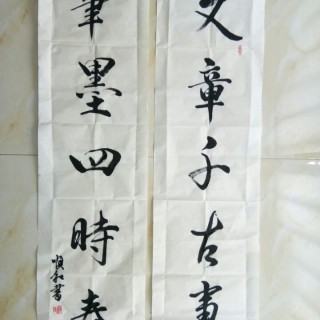 文章千古事
筆墨四時春
順和書